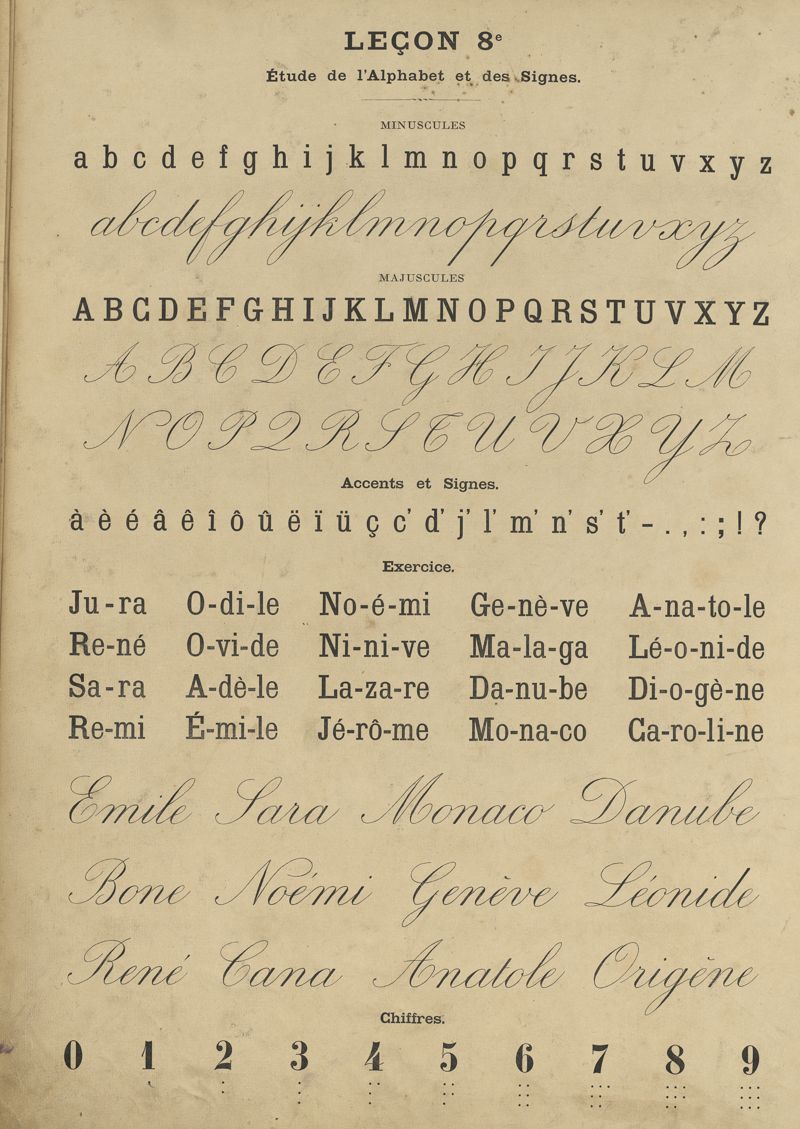 LEÇON 8e
Étude de l'Alphabet et des Signes.
MINUSCULES
a b c d e f g h i j k l m n o p q r s t u v x y z
abcdefghijklmnopqrstuvxyz
MAJUSCULES
A B C D E F G H I J K L M N O P Q R S T U V X Y Z
A B C D E F G H I J K L M
N O P Q R S T U V X Y Z
Accents et Signes.
à è é â ê î ô û ë ï ü ç c' d' j' l' m' n' s' t' - . , : ; ! ?
Exercice.
Ju-ra O-di-le No-é-mi Ge-nè-ve A-na-to-le
Re-né O-vi-de Ni-ni-ve Ma-la-ga Lé-o-ni-de
Sa-ra A-dè-le La-za-re Da-nu-be Di-o-gè-ne
Re-mi É-mi-le Jé-rô-me Mo-na-co Ca-ro-li-ne
Emile Sara Monaco Danube
Bone Noémi Genève Léonide
René Cana Anatole Origène
Chiffres.
0 1 2 3 4 5 6 7 8 9